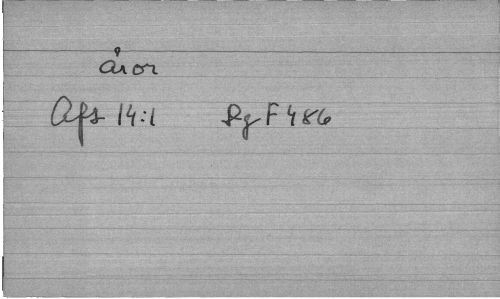 åror
Afs 14:1 Rg F 486